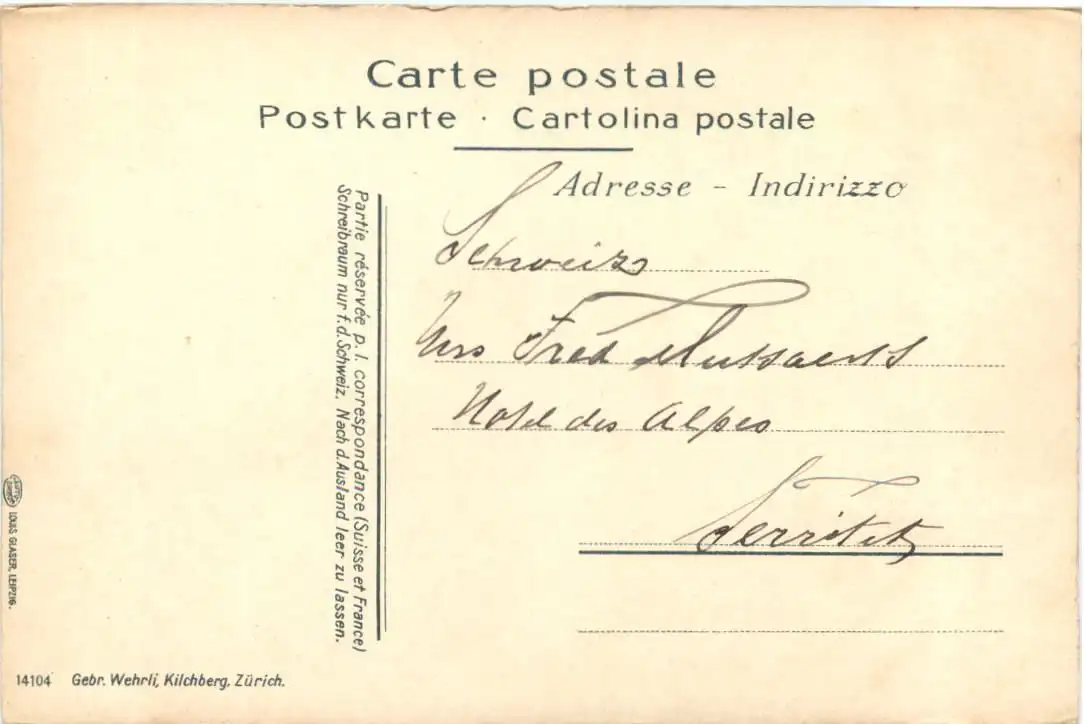 Carte postale
Postkarte · Cartolina postale
Adresse - Indirizzo
Schweiz
Mrs Fred
Hotel des Alpes
Territet
Partie réservée p. l. correspondance (Suisse et France)
Schreibraum nur f. d. Schweiz. Nach d. Ausland leer zu lassen.
LOUIS GLASER, LEIPZIG.
14104 Gebr. Wehrli, Kilchberg, Zürich.